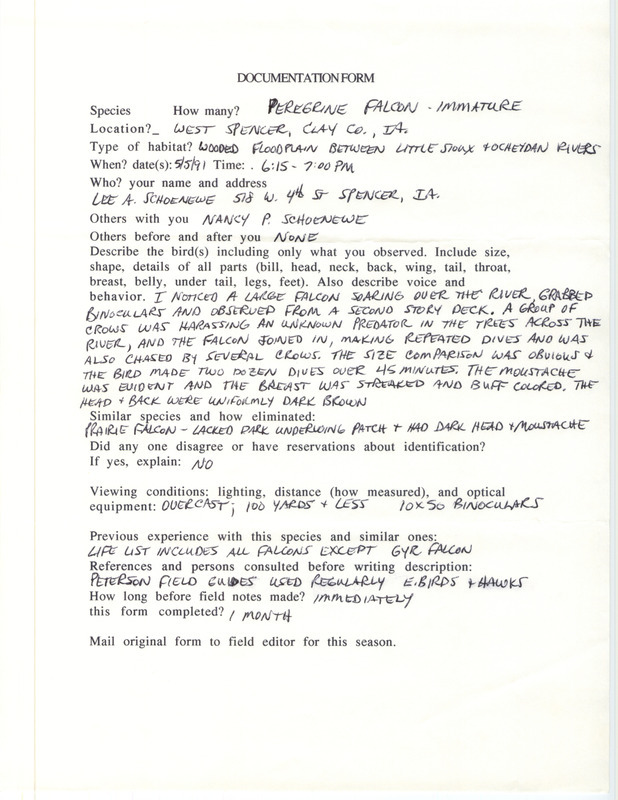 DOCUMENTATION FORM
Species How many? PEREGRINE FALCON - IMMATURE
Location?_ WEST SPENCER, CLAY CO., IA.
Type of habitat? WOODED FLOODPLAIN BETWEEN LITTLE SIOUX + OCHEYDAN RIVERS
When? date(s): 5/5/91 Time: . 6:15 - 7:00 PM
Who? your name and address
LEE A. SCHOENEWE 518 W. 4th ST SPENCER, IA.
Others with you NANCY P. SCHOENEWE
Others before and after you NONE
Describe the bird(s) including only what you observed. Include size,
shape, details of all parts (bill, head, neck, back, wing, tail, throat,
breast, belly, under tail, legs, feet). Also describe voice and
behavior. I NOTICED A LARGE FALCON SOARING OVER THE RIVER, GRABBED
BINOCULARS AND OBSERVED FROM A SECOND STORY DECK. A GROUP OF
CROWS WAS HARASSING AN UNKNOWN PREDATOR IN THE TREES ACROSS THE
RIVER, AND THE FALCON JOINED IN, MAKING REPEATED DIVES AND WAS
ALSO CHASED BY SEVERAL CROWS. THE SIZE COMPARISON WAS OBVIOUS +
THE BIRD MADE TWO DOZEN DIVES OVER 45 MINUTES. THE MOUSTACHE
WAS EVIDENT AND THE BREAST WAS STREAKED AND BUFF COLORED. THE
HEAD + BACK WERE UNIFORMLY DARK BROWN
Similar species and how eliminated:
PRAIRIE FALCON - LACKED DARK UNDERWING PATCH + HAD DARK HEAD + MOUSTACHE
Did any one disagree or have reservations about identification?
If yes, explain: NO
Viewing conditions: lighting, distance (how measured), and optical
equipment: OVERCAST; 100 YARDS + LESS 10X50 BINOCULARS
Previous experience with this species and similar ones:
LIFE LIST INCLUDES ALL FALCONS EXCEPT GYR FALCON
References and persons consulted before writing description:
PETERSON FIELD GUIDES USED REGULARLY E. BIRDS + HAWKS
How long before field notes made? IMMEDIATELY
this form completed? 1 MONTH
Mail original form to field editor for this season.